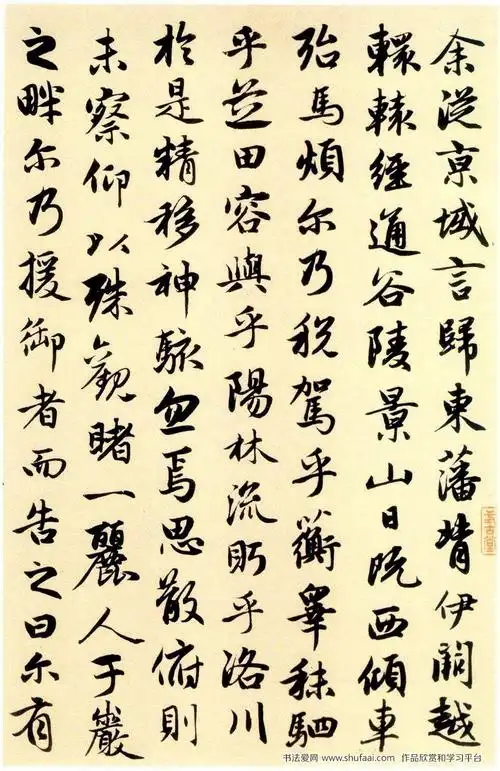 余從京域言歸東藩背伊闕越
轘轅經通谷陵景山日既西傾車
殆馬煩尔乃税駕乎蘅皋秣駟
乎芝田容與乎陽林流眄乎洛川
於是精移神駭忽焉思散俯則
未察仰以殊觀睹一麗人于巖
之畔尔乃援御者而告之曰尔有
书法爱网 www.shufaai.com 作品欣赏和学习平台